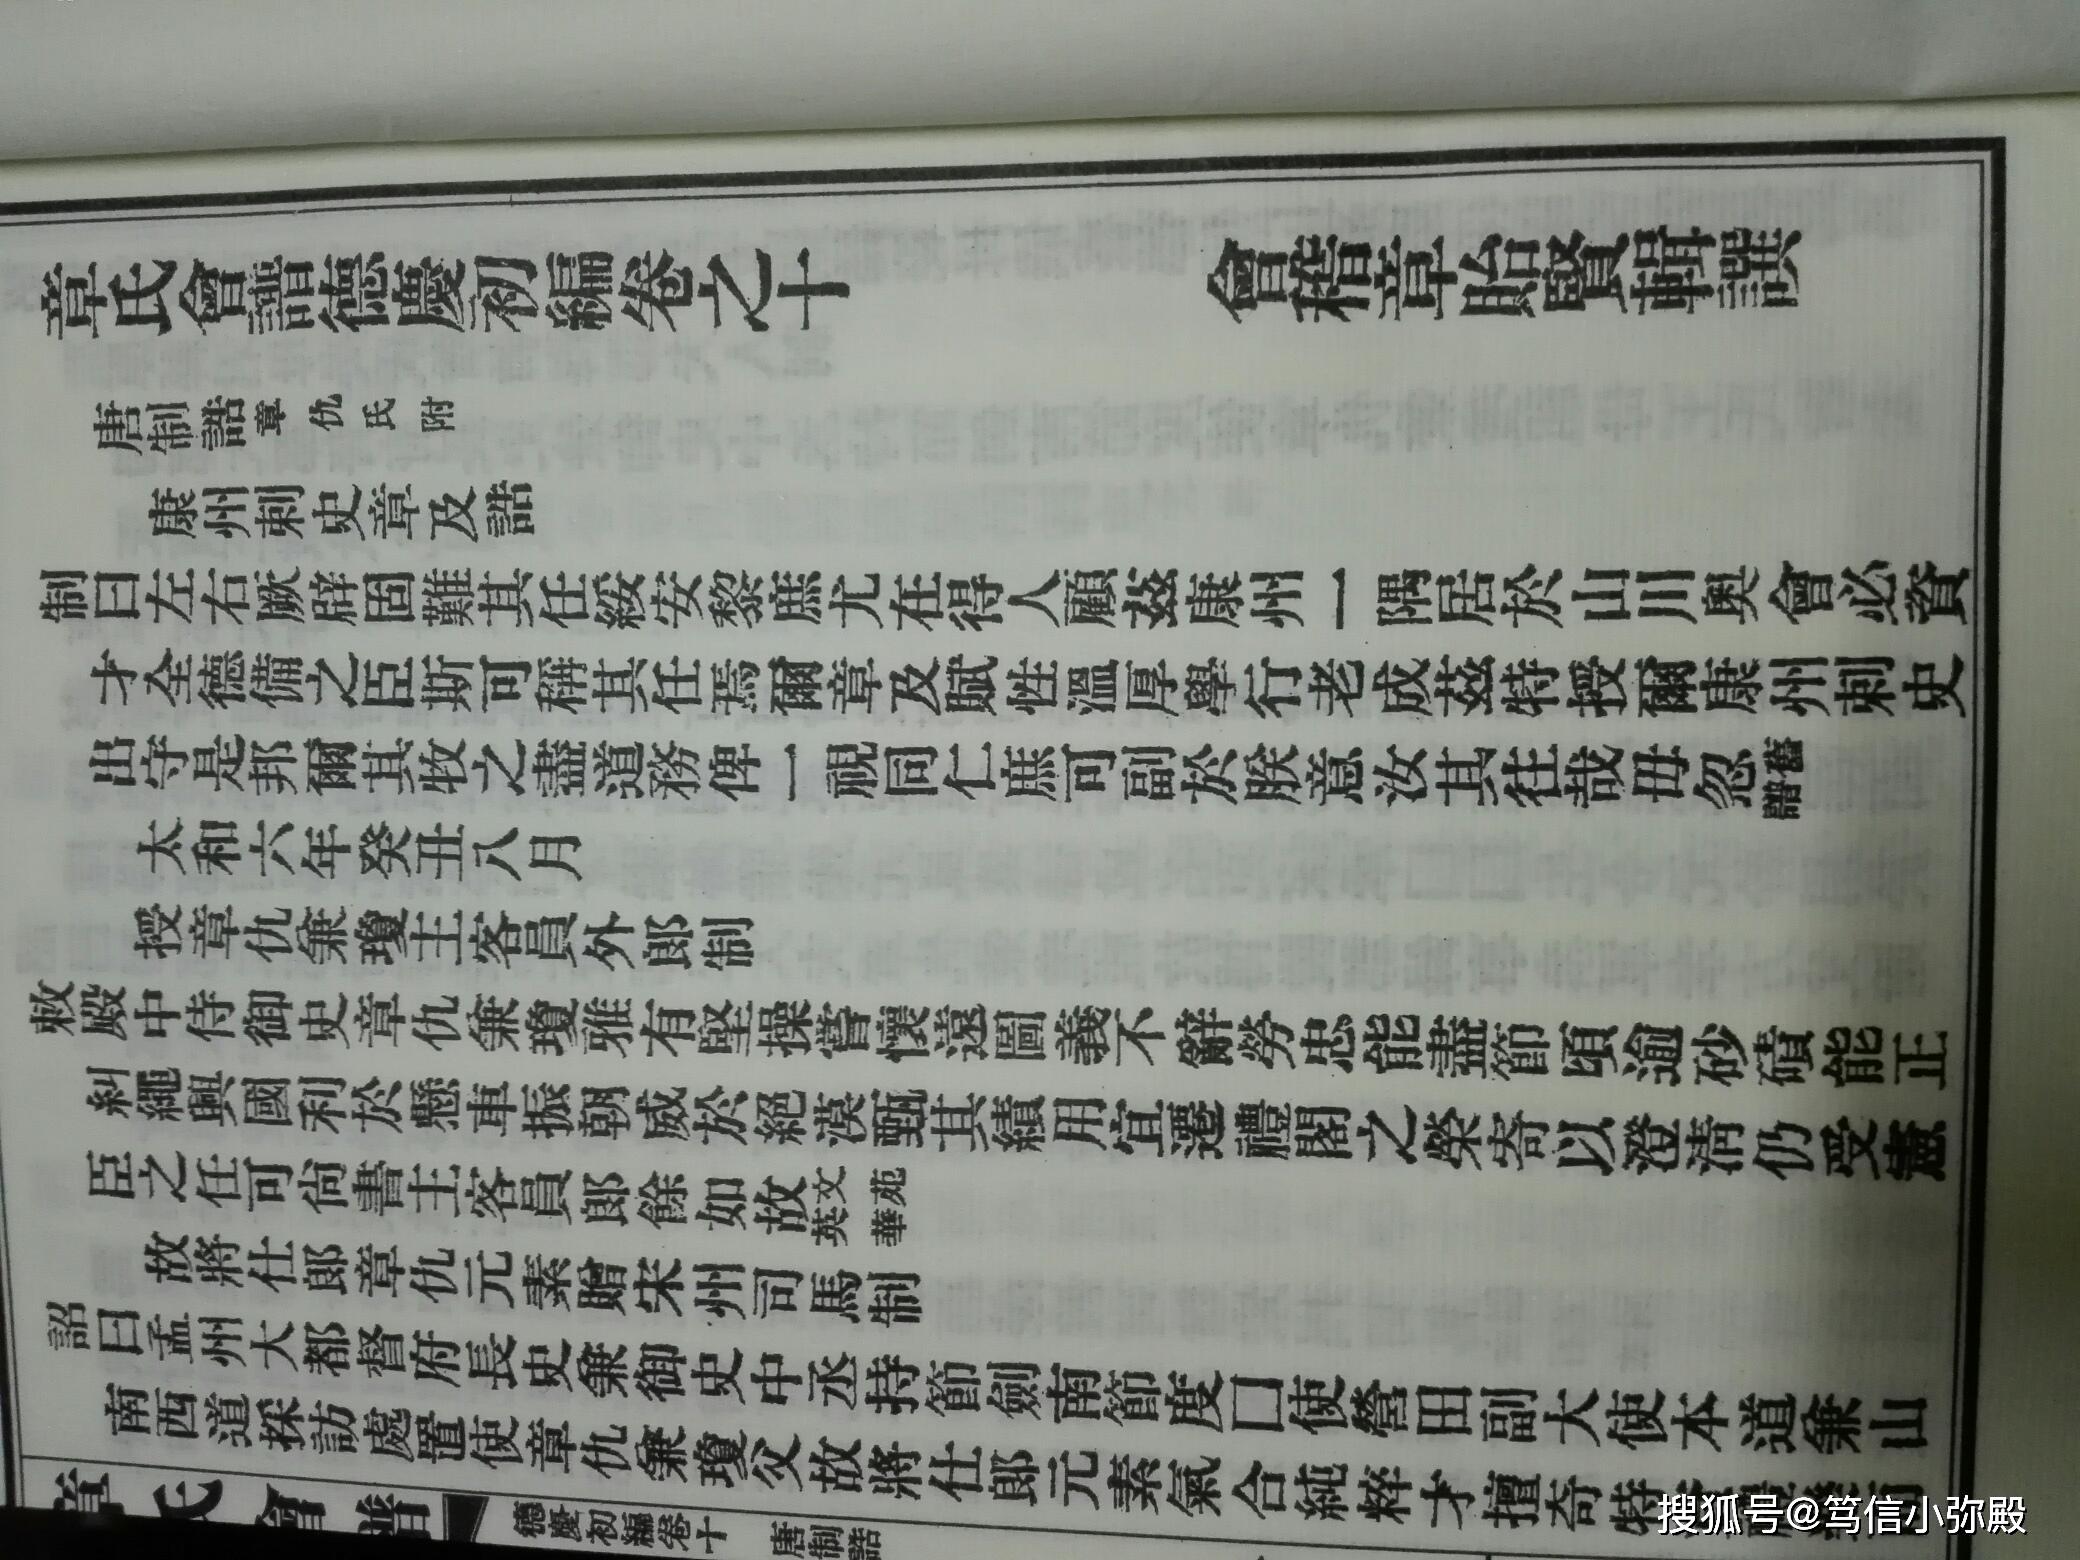 章氏會譜德慶初編卷之十
會稽章貽賢輯譔
唐制誥章仇氏附
康州刺史章及誥
制曰左右厥辟固難其任綏安黎庶尤在得人顧茲康州一隅居於山川奧會必資
才全德備之臣斯可稱其任焉爾章及賦性溫厚學行老成茲特授爾康州刺史
出守是邦爾其牧之盡道務俾一視同仁庶可副於朕意汝其往哉毋忽舊譜
太和六年癸丑八月
授章仇兼瓊主客員外郎制
敕殿中侍御史章仇兼瓊雅有堅操嘗懷遠圖義不辭勞忠能盡節頃逾砂磧能正
糾繩興國利於懸車振朝威於絕漠甄其績用宜遷禮閣之榮寄以澄清仍受憲
臣之任可尙書主客員郎餘如故文苑英華
故將仕郎章仇元素贈宋州司馬制
詔曰孟州大都督府長史兼御史中丞持節劍南節度囗使營田副大使本道兼山
南西道採訪處置使章仇兼瓊父故將仕郎元素氣合純粹才擅奇特
章氏會譜
德慶初編卷十
唐制誥
搜狐号@笃信小弥殿